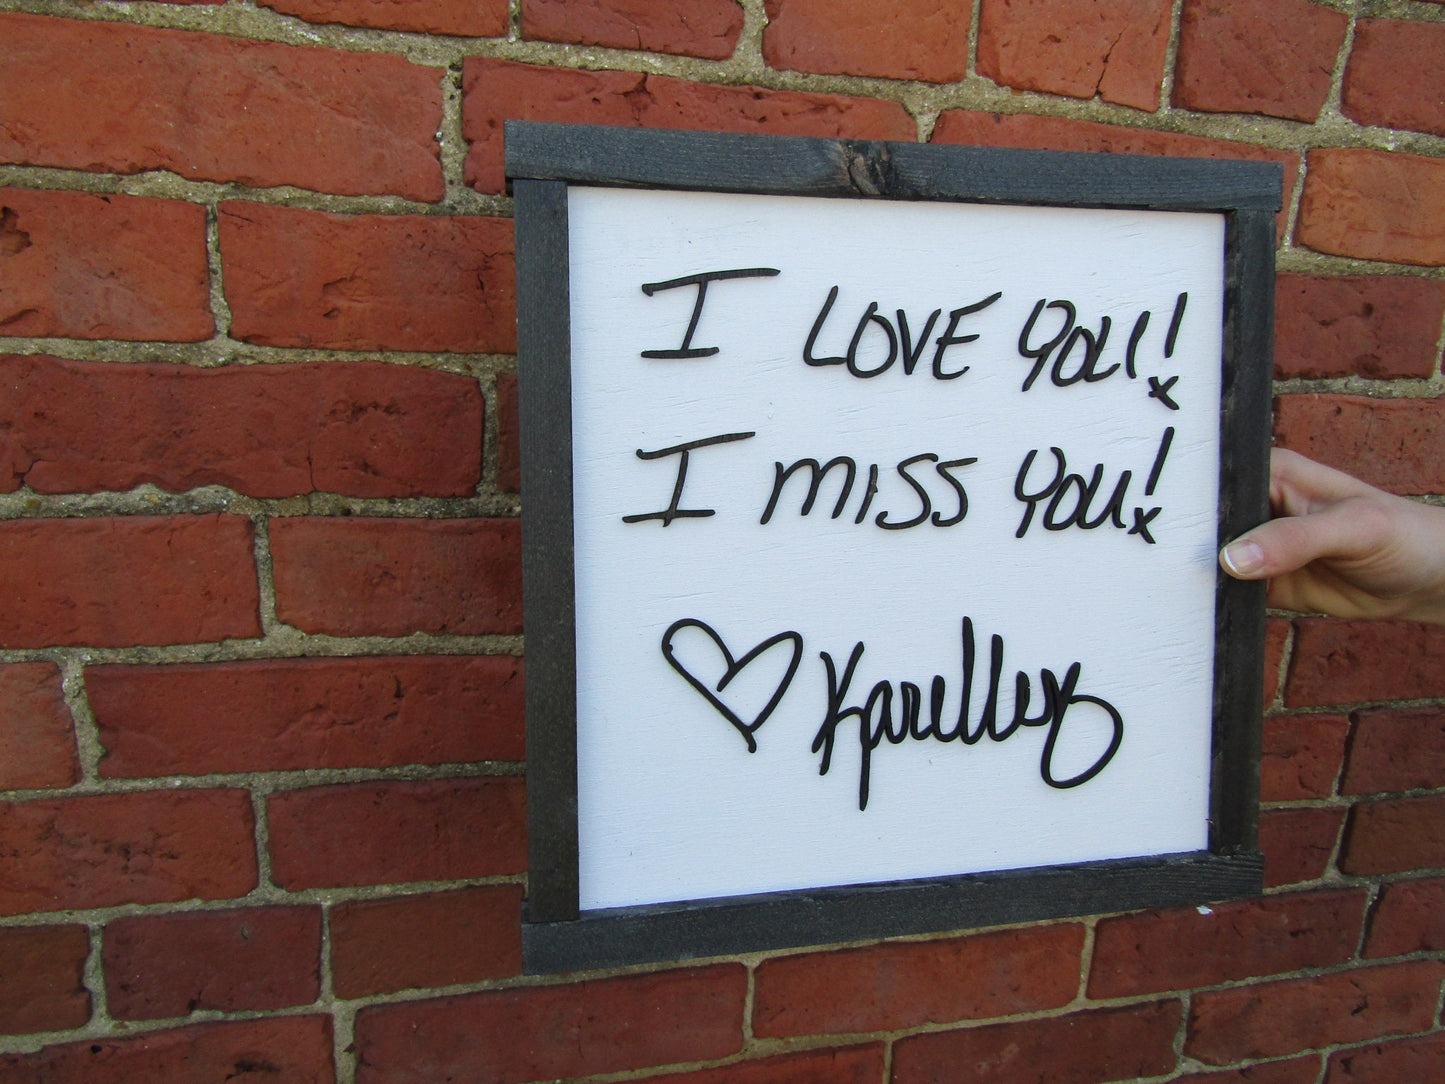 I LOVE YOU!
I MISS YOU!
♡ Karelley